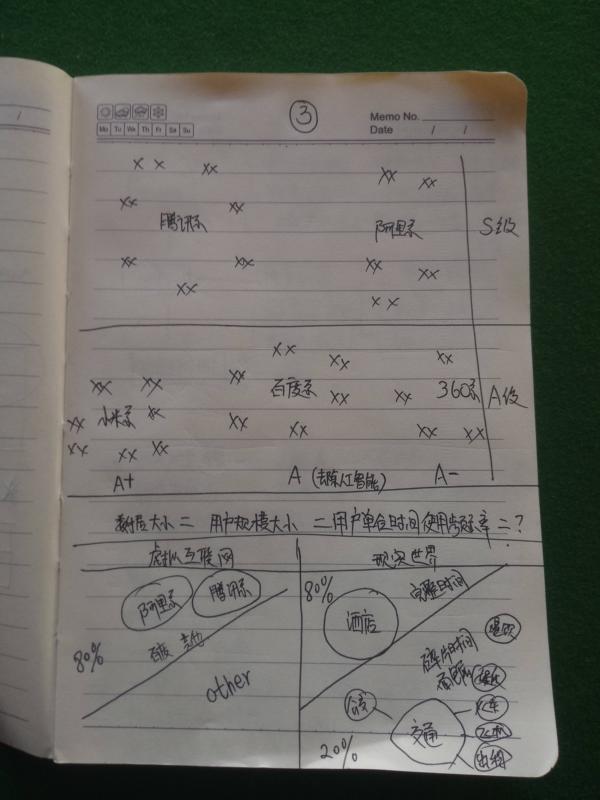 ③
Memo No.
Mo Tu We Th Fr Sa Su
Date / /
x x xx
xx xx
xx xx
腾讯系 阿里系 S级
xx xx xx
xx xx
x x
xx xx xx
xx xx xx
百度系 xx xx 360系 A级
小米系 xx
xx xx xx
xx xx
xx xx xx
A+ A (去除人工智能) A-
大小 = 用户规模大小 = 用户单台时间使用 率 = ?
虚拟互联网 现实世界
80% 完整时间
阿里系 腾讯系
酒店
80% 百度 其他 碎片时间
other
火车
交通 飞机
20% 出租